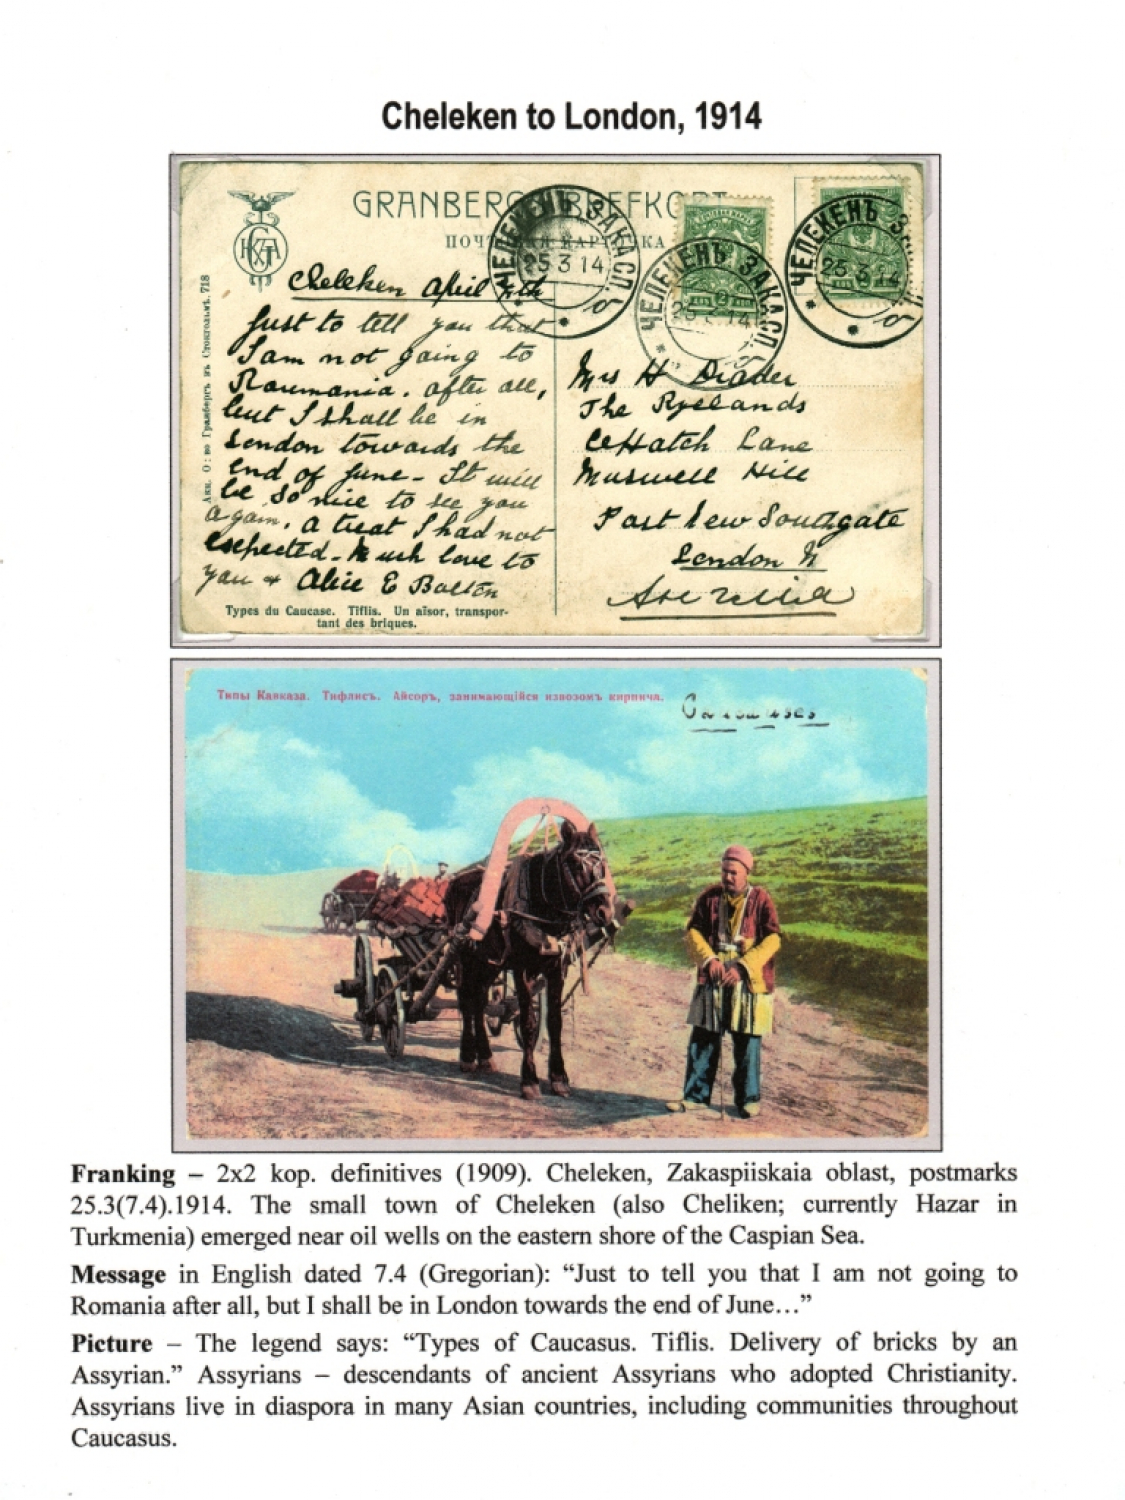 Cheleken to London, 1914
GRANBERGS BREFKORT
ПОЧТОВАЯ КАРТОЧКА
ЧЕЛЕКЕНЪ ЗАКАСП.
25 3 14
ЧЕЛЕКЕНЪ ЗАКАСП.
25 3 14
ЧЕЛЕКЕНЪ
25 3 14
Акц. О:во Гранбергъ въ Стокгольмѣ. 718
Cheleken April 7th
Just to tell you that
I am not going to
Roumania. after all,
but I shall be in
London towards the
end of June - It will
be so nice to see you
again. a treat I had not
expected - Much love to
you + Alice E
Types du Caucase. Tiflis. Un aïsor, transpor-
tant des briques.
Mrs H
The Ryelands
Hatch Lane
Muswell Hill
Southgate
London N
Типы Кавказа. Тифлисъ. Айсоръ, занимающійся извозомъ кирпича.
Franking – 2x2 kop. definitives (1909). Cheleken, Zakaspiiskaia oblast, postmarks
25.3(7.4).1914. The small town of Cheleken (also Cheliken; currently Hazar in
Turkmenia) emerged near oil wells on the eastern shore of the Caspian Sea.
Message in English dated 7.4 (Gregorian): “Just to tell you that I am not going to
Romania after all, but I shall be in London towards the end of June…”
Picture – The legend says: “Types of Caucasus. Tiflis. Delivery of bricks by an
Assyrian.” Assyrians – descendants of ancient Assyrians who adopted Christianity.
Assyrians live in diaspora in many Asian countries, including communities throughout
Caucasus.